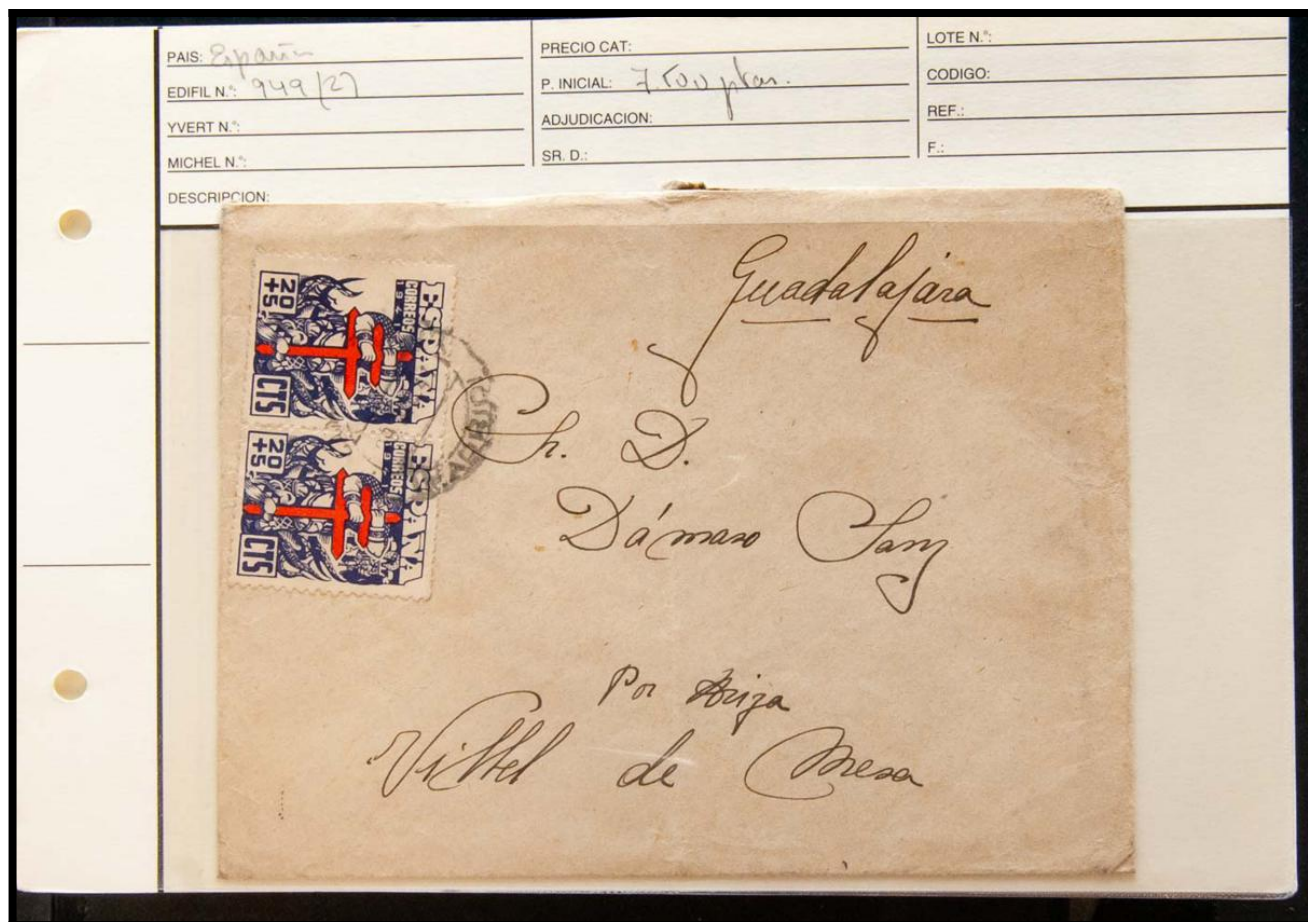 PAIS: España
EDIFIL N.º: 949 (2)
YVERT N.º:
MICHEL N.º:
DESCRIPCION:
PRECIO CAT:
P. INICIAL: 7.500 ptas.
ADJUDICACION:
SR. D.:
LOTE N.º:
CODIGO:
REF.:
F.:
ESPAÑA
CORREOS
1941
20
+5
CTS
ESPAÑA
CORREOS
1941
20
+5
CTS
Guadalajára
D.
Dámaso Sanz
Por Ariza
Villel de Mesa